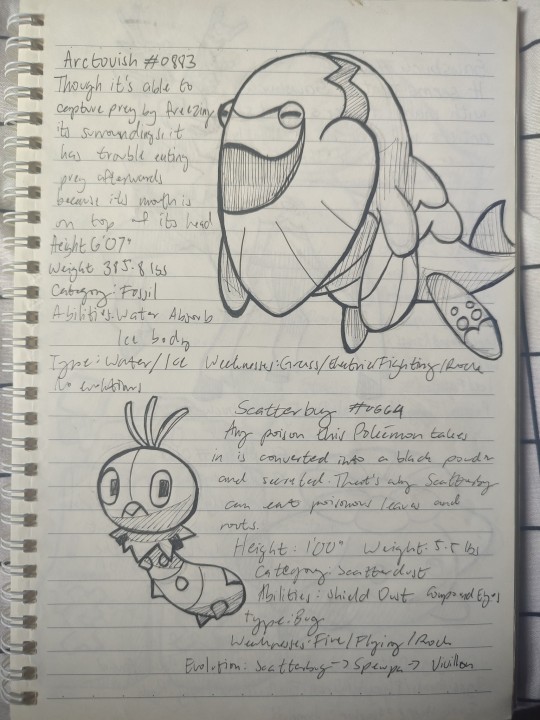 Arctovish #0883
Though it's able to
capture prey by freezing
its surroundings it
has trouble eating
prey afterwards
because its mouth is
on top of its head
Height 6'07"
Weight 385.8 lbs
Category: Fossil
Abilities: Water Absorb
Ice body
Type: Water/Ice Weaknesses: Grass/Electric/Fighting/Rock
No evolutions
Scatterbug #0664
Any poison this Pokémon takes
in is converted into a black powder
and secreted. That's why Scatterbug
can eat poisonous leaves and
roots.
Height: 1'00" Weight: 5.5 lbs
Category: Scatterdust
Abilities: Shield Dust Compound Eyes
Type: Bug
Weaknesses: Fire/Flying/Rock
Evolution: Scatterbug -> Spewpa -> Vivillon